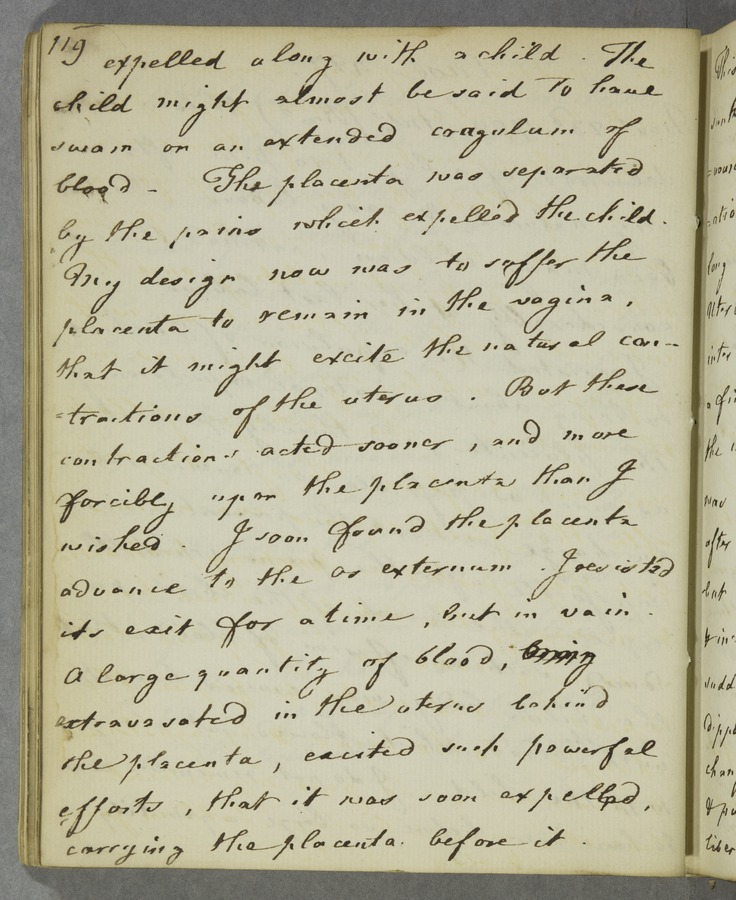 119
expelled along with a child. The
child might almost be said to have
swam on an extended coagulum of
blood - The placenta was separated
by the pains which expelled the child.
My design now was to suffer the
placenta to remain in the vagina,
that it might excite the natural con-
=tractions of the uterus. But these
contractions acted sooner, and more
forcibly upon the placenta than I
wished. I soon found the placenta
advance to the os externum. I resisted
its exit for a time, but in vain.
A large quantity of blood,
extravasated in the uterus behind
the placenta, excited such powerful
efforts, that it was soon expelled,
carrying the placenta before it.